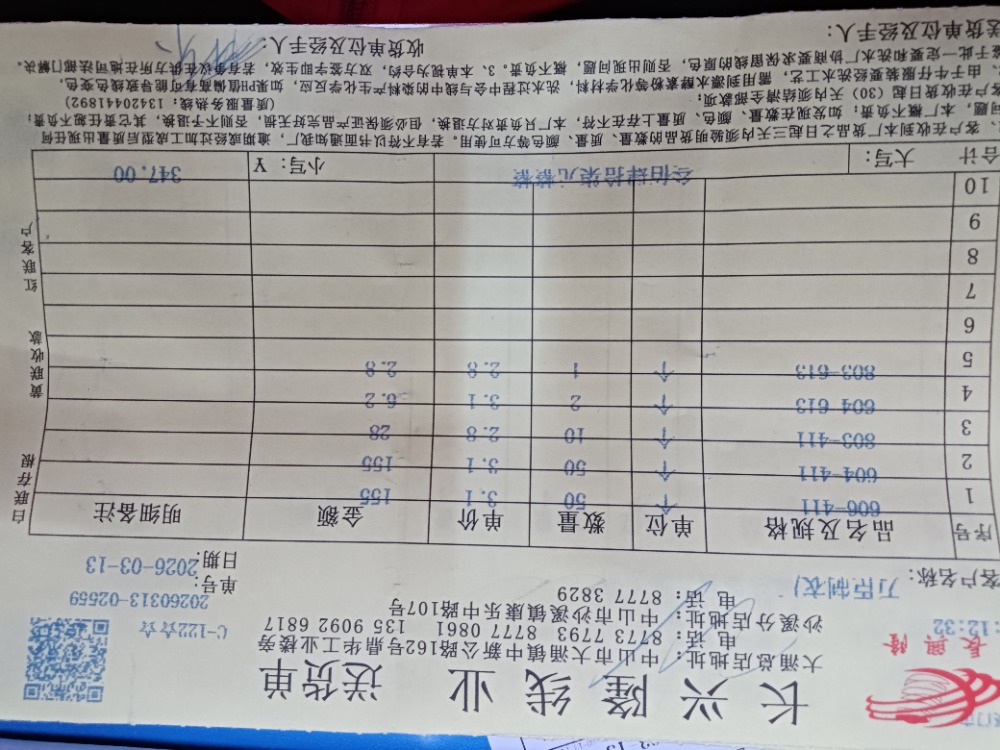 长兴隆线业 送货单
長興隆
:12:32
大涌总店地址：中山市大涌镇中新公路162号鼎华工业楼旁
电 话：8773 7793 8777 0861 135 9092 6817
沙溪分店地址：中山市沙溪镇康乐中路107号
电 话：8777 3829
C-122☆☆
单号：20260313-02559
客户名称：
日期：2026-03-13
序号 品名及规格 单位 数量 单价 金额 明细备注
1 606-411 个 50 3.1 155
2 604-411 个 50 3.1 155
3 803-411 个 10 2.8 28
4 604-613 个 2 3.1 6.2
5 803-613 个 1 2.8 2.8
6
7
8
9
10
合计 大写： 叁佰肆拾柒元整整 小写：¥ 347.00
白联存根 黄联收款 红联客户
、客户在收到本厂货品之日起三天内须验明货品的数量、质量、颜色等方可使用，若有不符以书面通知我厂，逾期或经过加工成型后质量出现任何
问题，本厂概不负责；如发现在数量、颜色、质量上存在不符，本厂只负责对方退换，但必须保证产品完好无损，否则不予退换，其它责任概不负责；
客户在收货日起（30）天内须结清全部款项； （质量服务热线：13420441892）
、由于牛仔服装要经洗水工艺，需用到漂水酵素粉等化学材料，洗水过程中会与线中的染料产生化学反应，如果PH值偏高有可能导致线色变色，
鉴于此一定要和洗水厂协商要求保留线的原色，否则出现问题，概不负责。3、本单视为合约，双方签字即生效，若有争议在供方所在地司法部门解决。
送货单位及经手人： 收货单位及经手人：